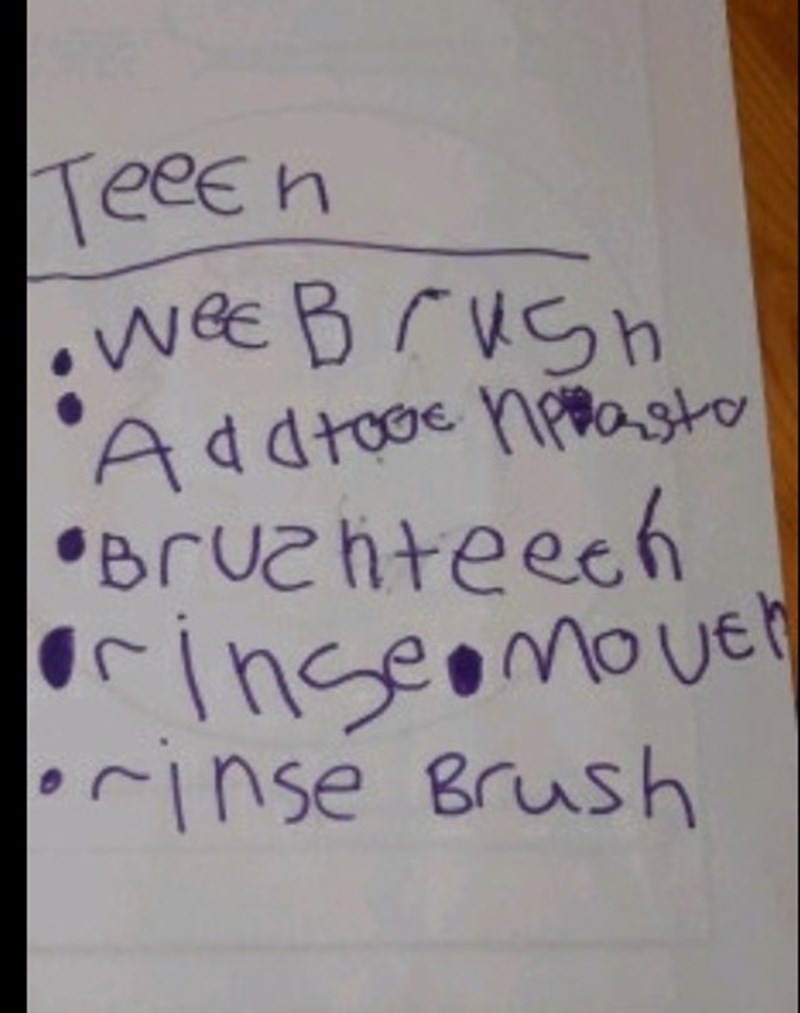 Teeen
• wee Brush
• Addtooe hpasta
• Brushteeeh
• rinse • moueh
• rinse Brush